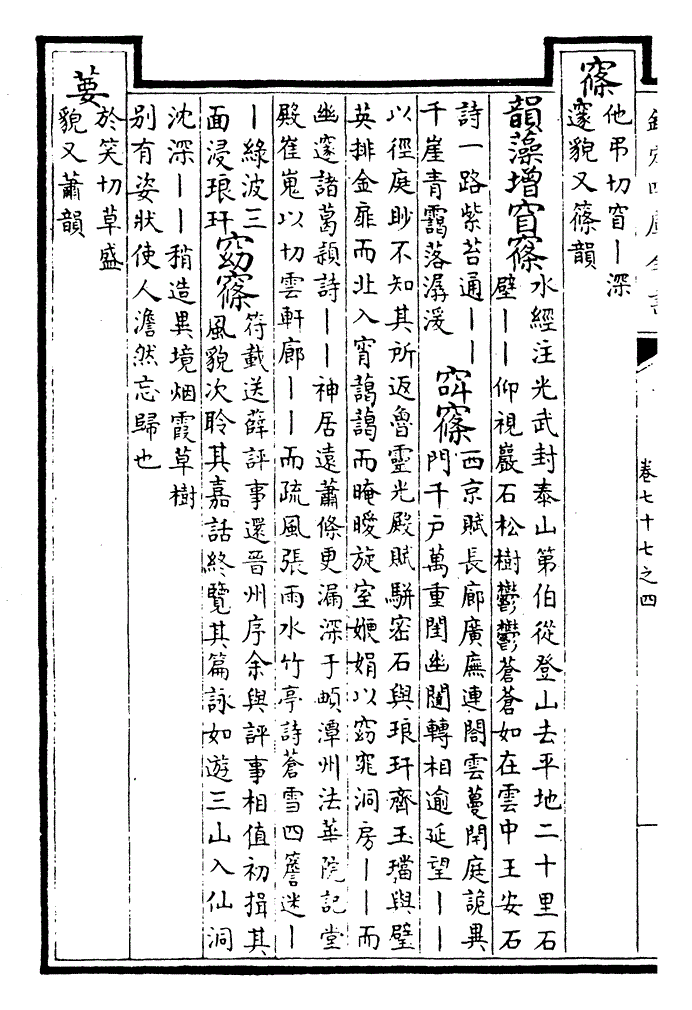 欽定四庫全書
卷七十七之四
窱
他弔切窅丨深
邃貌又篠韻
韻藻增窅窱
水經注光武封泰山第伯從登山去平地二十里石
壁丨丨仰視巖石松樹鬱鬱蒼蒼如在雲中王安石
詩一路紫苔通丨丨
千崖青靄落潺湲
窱
西京賦長廊廣廡連閣雲蔓閈庭詭異
門千戶萬重閨幽闥轉相逾延望丨丨
以徑庭眇不知其所返魯靈光殿賦駢密石與琅玕齊玉璫與璧
英排金扉而北入宵藹藹而晻曖旋室㛹娟以窈窕洞房丨丨而
幽邃諸葛潁詩丨丨神居遠蕭條更漏深于頔潭州法華院記堂
殿崔嵬以切雲軒廊丨丨而疏風張雨水竹亭詩蒼雪四簷迷丨
丨綠波三
面浸琅玕
窈窱
符載送薛評事還晉州序余與評事相值初揖其
風貌次聆其嘉話終覽其篇詠如遊三山入仙洞
沈深丨丨稍造異境烟霞草樹
別有姿狀使人澹然忘歸也
葽
於笑切草盛
貌又蕭韻